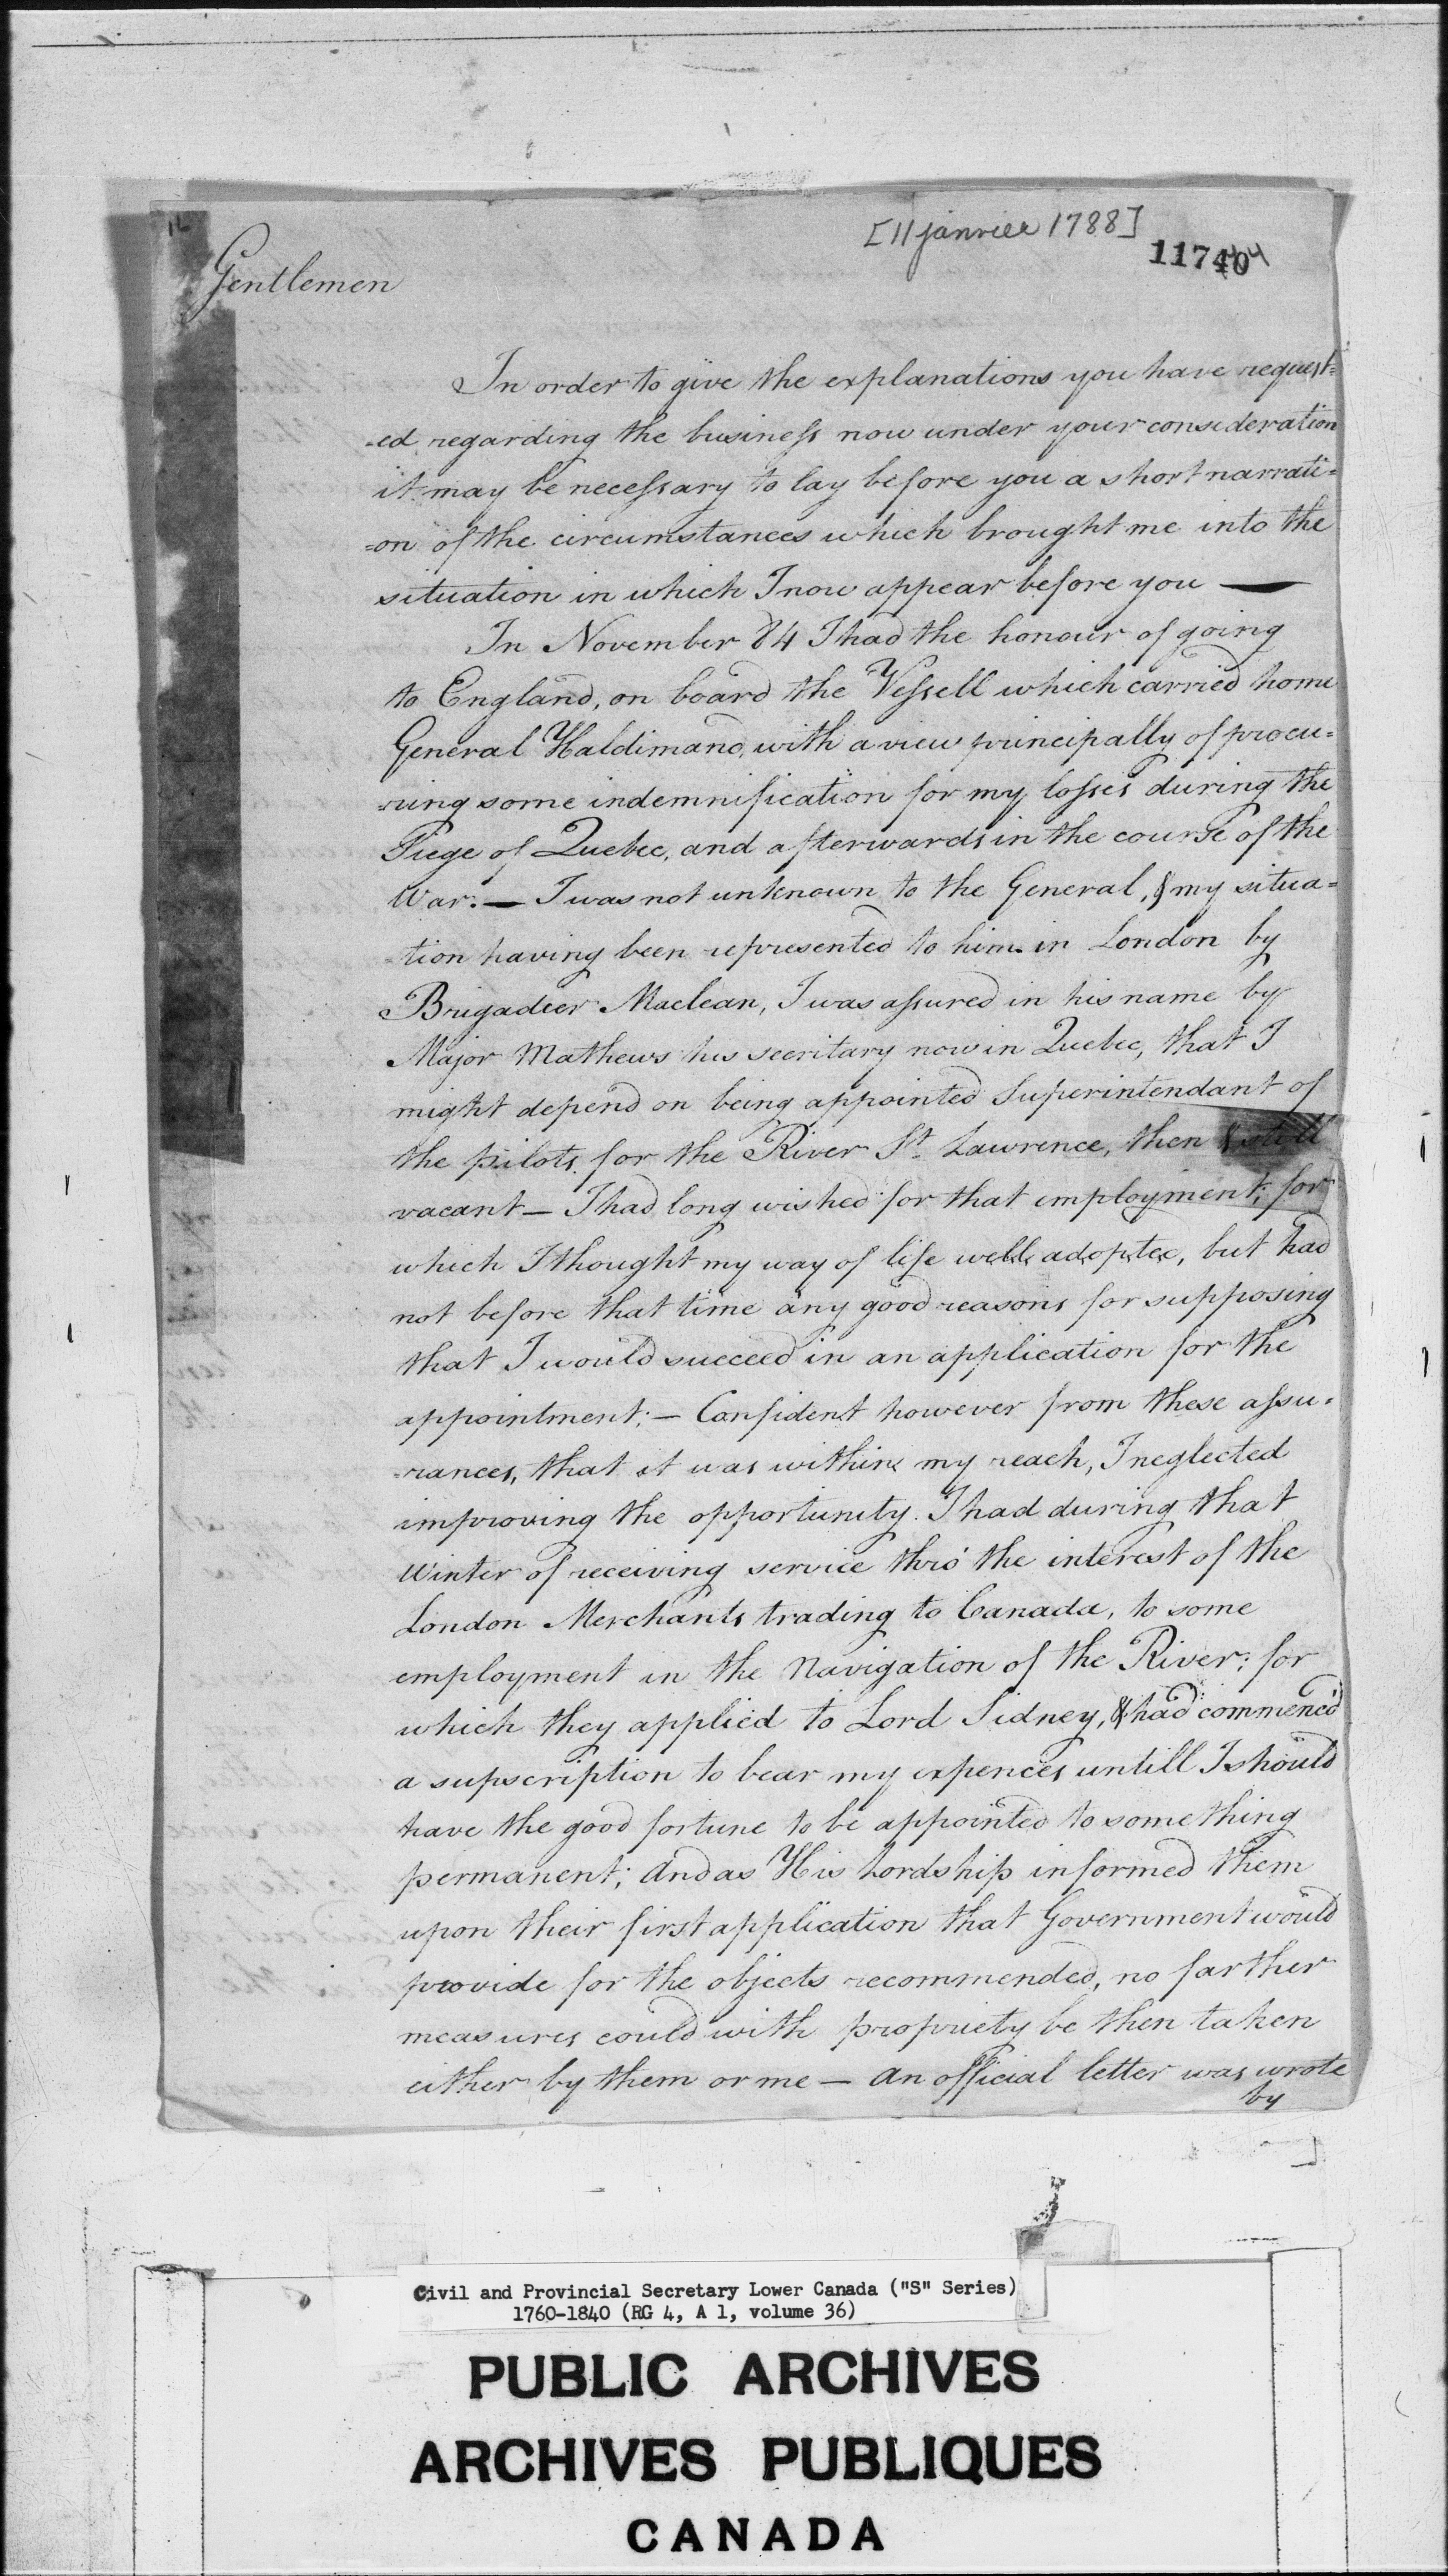 [11 janvier 1788]
11740
Gentlemen
In order to give the explanations you have request=
-ed regarding the business now under your consideration
it may be necessary to lay before you a short narrati=
=on of the circumstances which brought me into the
situation in which I now appear before you —
In November 84 I had the honour of going
to England, on board the Vessell which carried home
General Haldimand, with a view principally of procu=
-ring some indemnification for my losses during the
Siege of Quebec, and afterwards in the course of the
War. — I was not unknown to the General, & my situa=
-tion having been represented to him in London by
Brigadeer Maclean, I was assured in his name by
Major Mathews his secritary now in Quebec, that I
might depend on being appointed Superintendant of
the pilots for the River St. Lawrence, then & still
vacant — I had long wished for that employment, for
which I thought my way of life well adopted, but had
not before that time any good reasons for supposing
that I would succeed in an application for the
appointment; — Confident however from these assu=
-rances, that it was within my reach, I neglected
improving the opportunity I had during that
Winter of receiving service thro' the interest of the
London Merchants trading to Canada, to some
employment in the Navigation of the River; for
which they applied to Lord Sidney, & had commenc'd
a supscription to bear my expences untill I should
have the good fortune to be appointed to something
permanent; And as His Lordship informed them
upon their first application that Government would
provide for the objects recommended, no farther
measures could with propriety be then taken
either by them or me — An official letter was wrote
by
Civil and Provincial Secretary Lower Canada ("S" Series)
1760-1840 (RG 4, A 1, volume 36)
PUBLIC ARCHIVES
ARCHIVES PUBLIQUES
CANADA